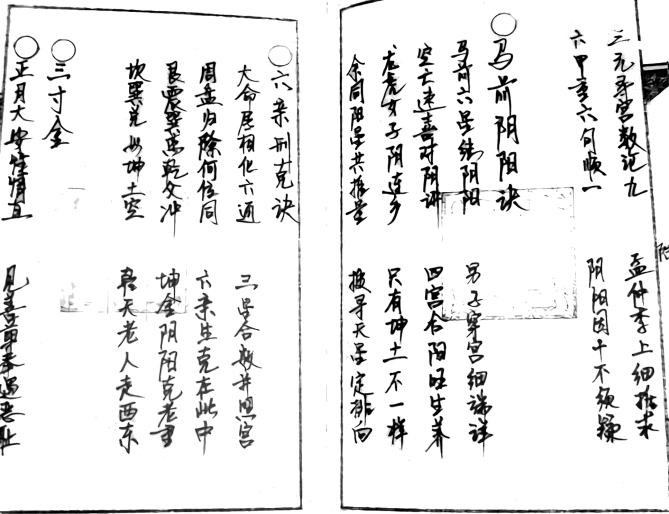 三元寻宫数论九 孟仲季上细推求
六甲重六旬顺一 阴阳固十不须疑
马前阴阳诀
马前六星结阴阳 男子穿宫细端详
空亡速喜对阴评 四宫合阳旺生养
龙虎女子阴连乡 只有坤土不一样
余同阳星共推量 搜寻天星定排向
六亲刑克诀
大命居相化六通 三星合数并照宫
周盘归除何位同 六亲生克在此中
艮震巽离乾交冲 坤金阴阳克老
坎巽兑 坤土空 乾天老人走西东
三寸金
正月大 见喜